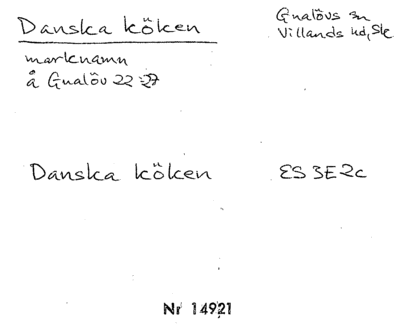 Danska köken
Gualövs sn
Villands hd, Sk
marknamn
å Gualöv 22-27
Danska köken
ES 3E2c
Nr 14921